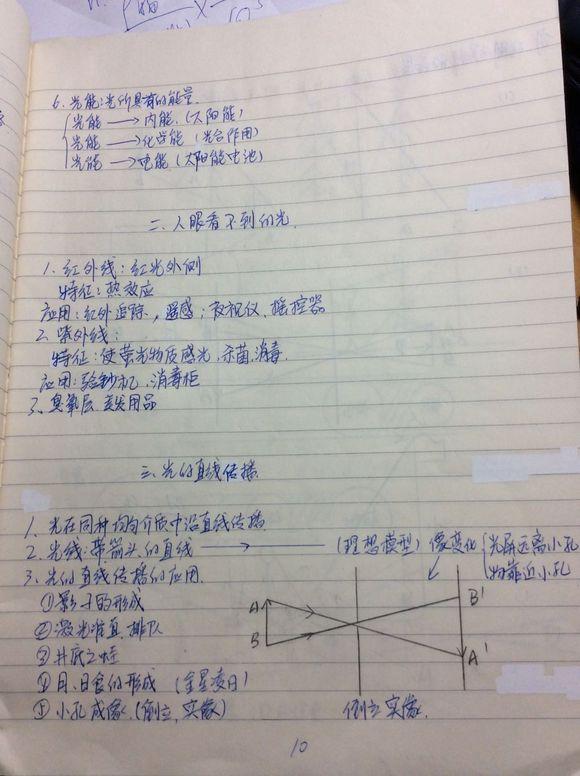 6、光能:光所具有的能量.
光能 → 内能.(太阳能)
光能 → 化学能(光合作用)
光能 → 电能(太阳能电池)
二、人眼看不到的光.
1、红外线:红光外侧
特征:热效应
应用:红外追踪,遥感;夜视仪、摇控器
2、紫外线:
特征:使萤光物质感光、杀菌、消毒.
应用:验钞机、消毒柜
3、臭氧层
三、光的直线传播.
1、光在同种均匀介质中沿直线传播
2、光线:带箭头的直线 → (理想模型)
3、光的直线传播的应用.
①影子的形成
②激光准直、排队
③井底之蛙
④月、日食的形成 (金星凌日)
⑤小孔成像.(倒立、实像)
像变化 光屏远离小孔
物靠近小孔
A B B' A'
倒立实像.
10